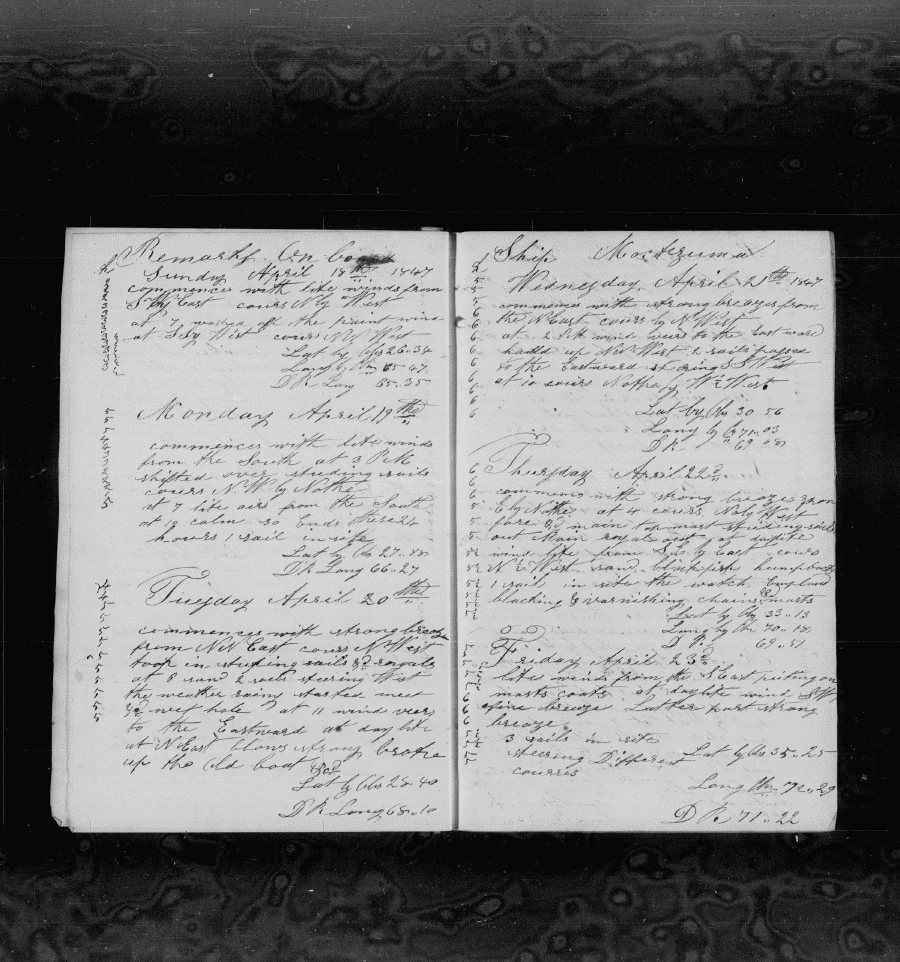 Remarks On board
Sunday April 18th 1847
commences with lite winds from
S by East cours N by West
at 7 washed off the paint wind
at S by West cours NNWest
Lat by Obs 26..34
Long by Obs 65-47
D R Long 65..35
Monday April 19th
commences with lite winds
from the South at 3 PM
shifted over studing sails
cours N W by Nothe
at 7 lite airs from the South
at 10 calm so ends these 24
hours 1 sail in site
Lat by Ob 27..18
D R Long 66-27
Tuesday April 20th
commences with strong breeze
from NNEast cours NWest
toop in studing sails & royals
at 8 saw 2 sails steering West
the weather rainy started meet
& wesf hole at 11 wind veers
to the Eastward at daylite
at NEast blows strong broke
up the Old boat
Lat by Obs 28-40
D R Long 68..10
Ship Moctezuma
Wednesday April 21th 1847
commences with strong breezes from
the NEast cours by NWest
at 2 PM wind veers to the Eastward
hauld up NWWest 2 sails passed
to the Eastward steering SSWest
at 10 cours Nothe by West
Lat by Ob 30 56
Long by Ob 71..03
D R 69..08
Thursday April 22d
commences with strong breezes from
E by Nothe at 4 cours N by West
fore & main top mast studing sails
out Main royal out at daylite
wind lite from S by East cours
NWest saw blackfish humpbacks
1 sail in site the watch Employd
blacking & varnishing chains & masts
Lat by Ob 33..13
Long by Ob 70..18
D R 69..51
Friday April 23d
lite winds from the SEast puting on
masts coats at daylite wind SW
fine breeze Latter part strong
breeze
3 sails in site
steering Different
courses
Lat by Obs 35..25
Long Obs 72..29
D R 71..22